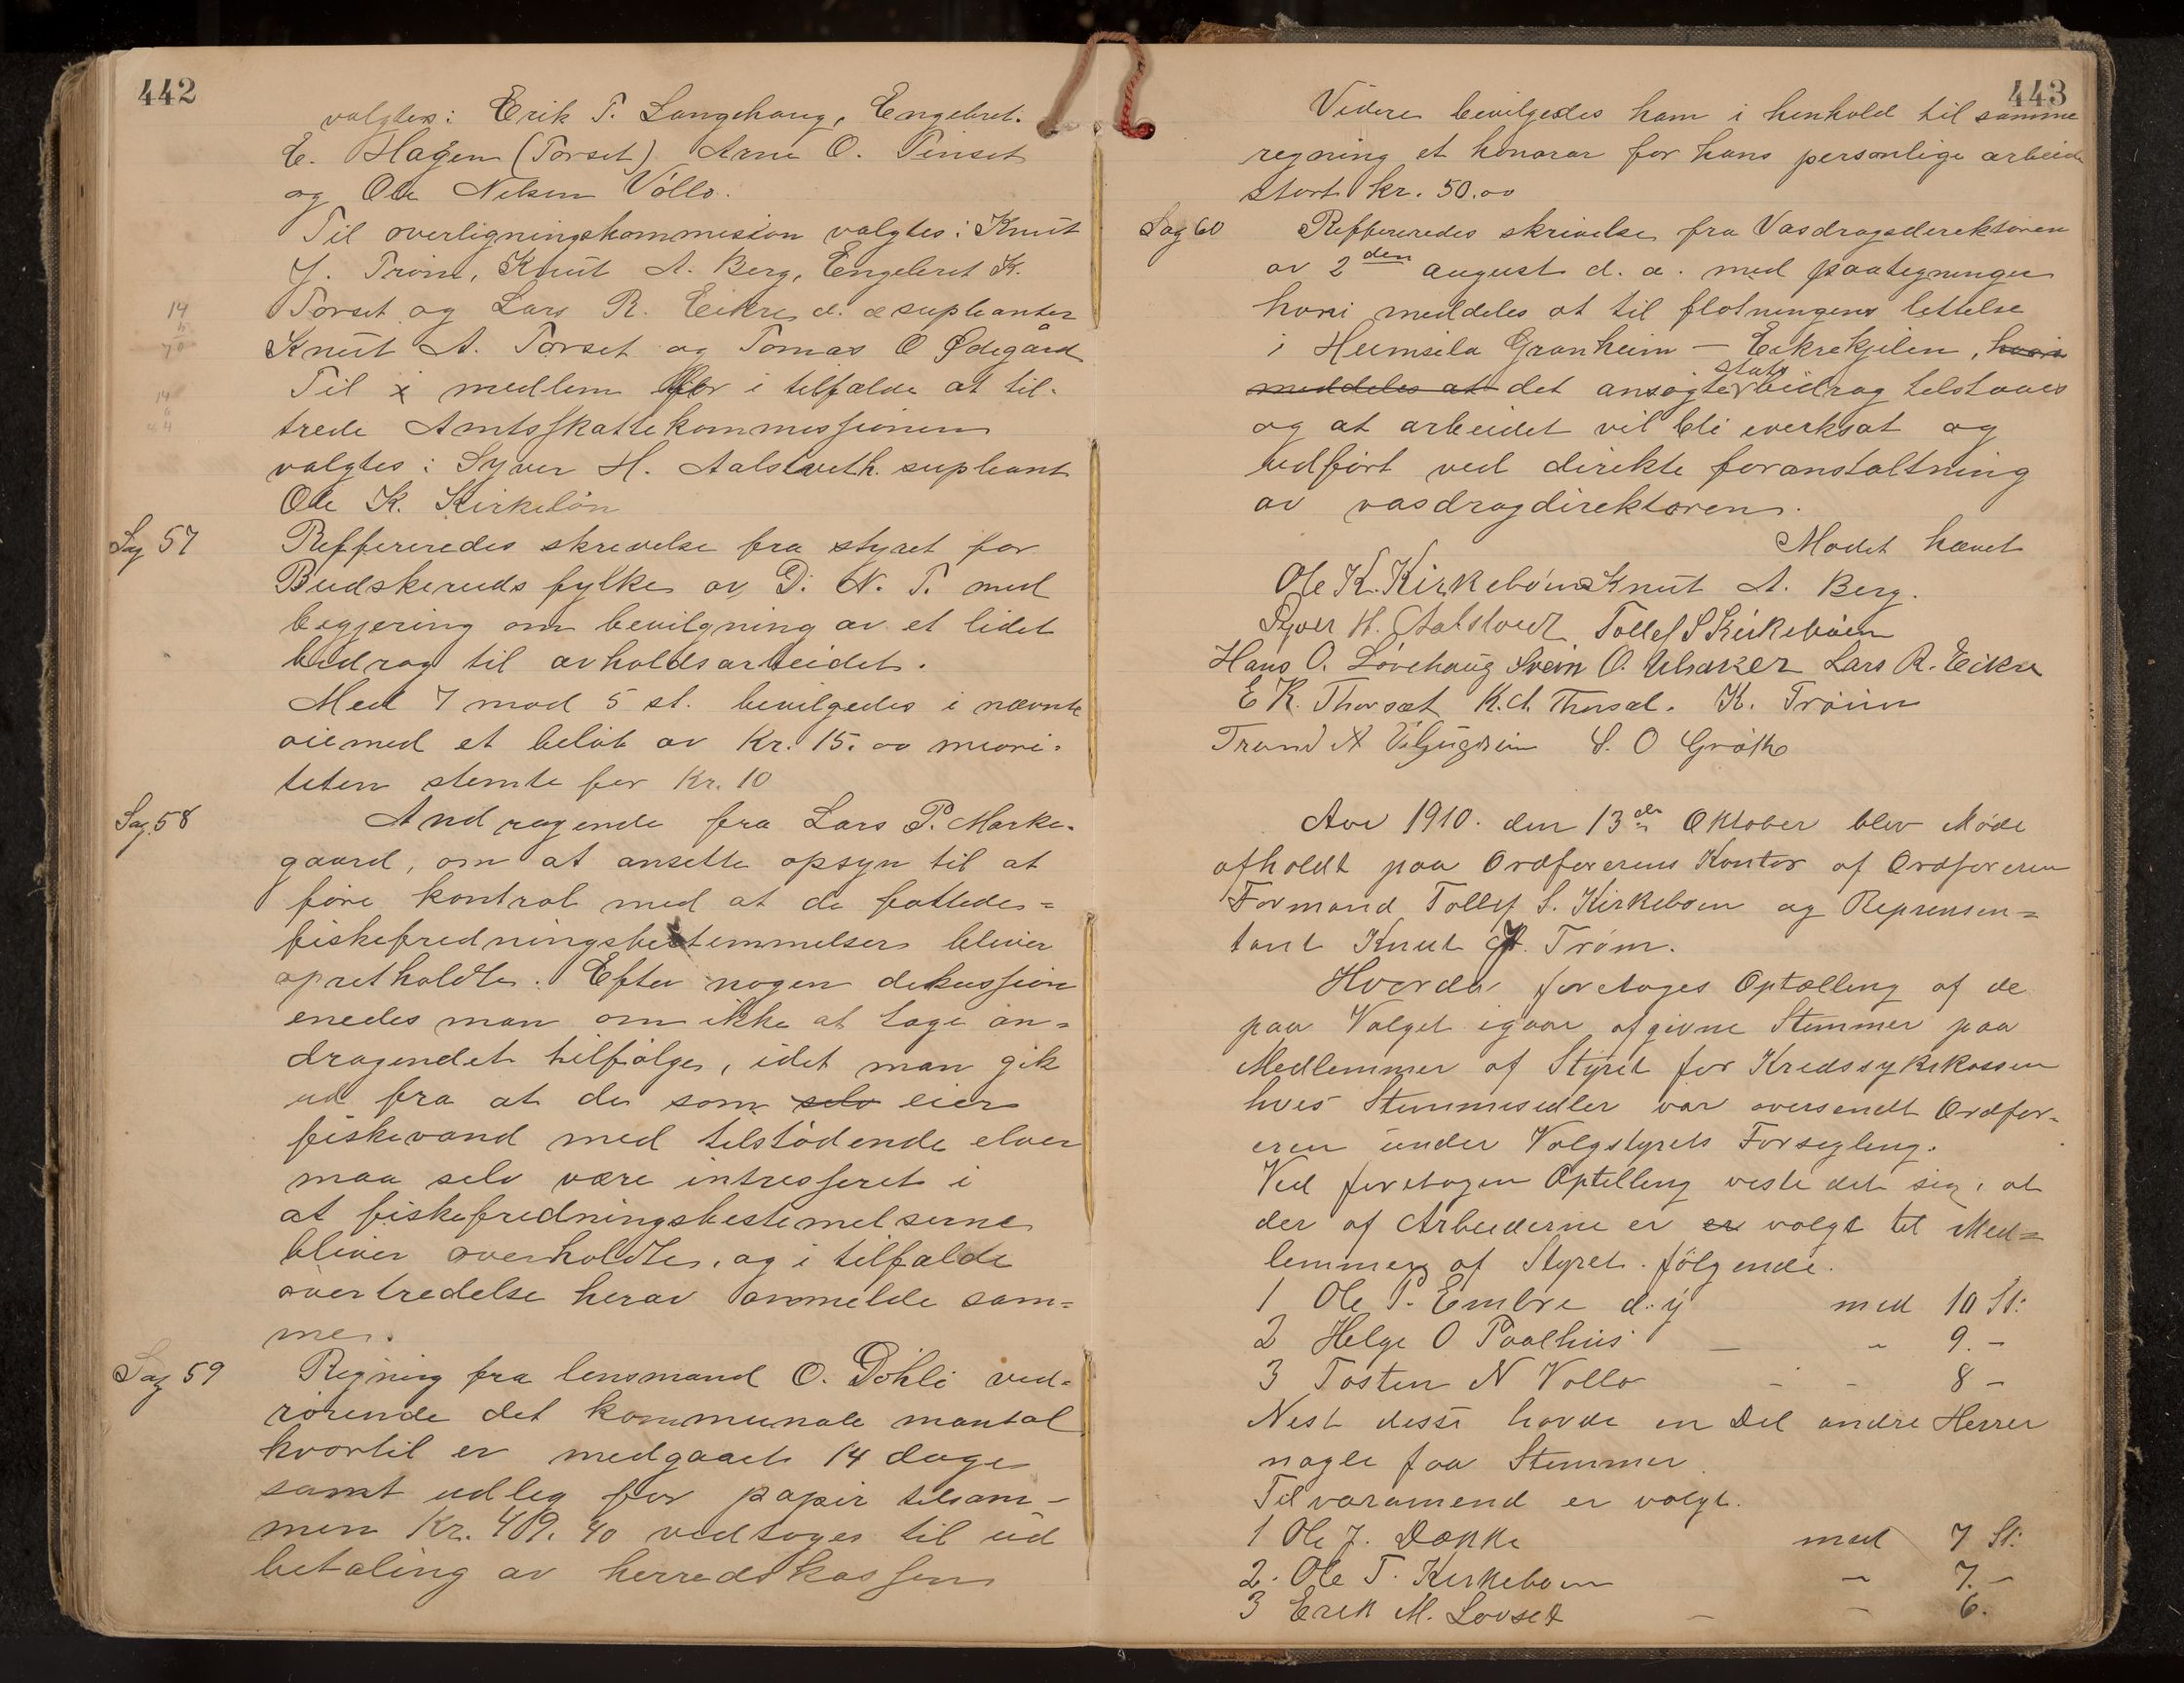 442
valgtes: Erik T. Langehaug, Engebret.
E. Hagen (Torset) Arne O. Tinset
og Ole Nelsen Vøllo.
Til overligningskommision valgtes: Knut
J. Trøim, Knut A. Berg, Engebret K.
Torset og Lars R. Eikre d. æ supleanter
Knut A. Torset og Tomas O Ødegård
Til medlem for i tilfælde at til-
trede Amtsskattekommissionen
valgtes: Syver H. Aalstveth. supleant
Ole K. Kirkebön
Sag 57
Reffereredes skrivelse fra styret for
Budskeruds fylke av D. N. T. med
begjering om bevilgning av et lidet
bidrag til avholdsarbeidet.
Med 7 mod 5 st. bevilgedes i nævnte
øiemed et beløb av Kr. 15.00 miori-
teten stemte for Kr. 10
Sag 58
Andragende fra Lars P. Marke-
gaard, om at ansette opsyn til at
føre kontrol med at de fattedes=
fiskefredningsbestemmelser bliver
opretholdte. Efter nogen diskussion
enedes man om ikke at tage an=
dragendet tilfølge, idet man gik
ud fra at de som selv eier
fiskevand med tilstödende elver
maa selv være intresseret i
at fiskefredningsbestemelserne
bliver overholdte, og i tilfælde
overtredelse herav anmelde sam=
me.
Sag 59
Regning fra lensmand O. Döhli ved-
rørende det kommunale mantal
hvortil er medgaaet 14 dage
samt udleg for papir tilsam-
men Kr. 409.40 vedtoges til ud
betaling av herredskassen
443
Videre bevilgedes ham i henhold til samme
regning et honorar for hans personlige arbeide
stort kr. 50.00
Sag 60
Reffereredes skrivelse fra Vasdragsdirektøren
av 2den august d. a. med paategninger
hvori meddeles at til flotningens lettelse
i Heimsila Granheim — Eikrekjilen, hvori
meddeles at det ansøgte stats bidrag tilstaaes
og at arbeidet vil bli iverksat og
udført ved direkte foranstaltning
av vasdragdirektøren.
Mødet hævet
Ole K. Kirkebøen Knut A. Berg.
Syver H. Aalstveit Tollef S Kirkebøen
Hans O. Løvehaug Svein O. Ulsaker Lars R. Eikre
E K. Thorset K. A. Thorset. K. Trøim
Trond A S. O Grøth
Aar 1910. den 13de Oktober blev Møde
afholdt paa Ordførerens Kontor af Ordføreren
Formand Tollef S. Kirkebøen og Reprensen=
tant Knut J. Trøim.
Hvorda foretoges Optælling af de
paa Valget igaar afgivne Stemmer paa
Medlemmer af Styret for Kredssykekassen
hves Stemmesedler var oversendt Ordfør-
eren under Valgstyrets Forsegling.
Ved foretagen Optelling viste det sig, at
der af Arbeiderne er er valgt til Med=
lemmer af Styret følgende.
1 Ole P. Embre d. y med 10 St:
2 Helge O Paalhus — " 9.-
3 Tosten N Vollo - - 8 -
Nest disse havde en Del andre Herrer
nogle faa Stemmer
Til varamend er valgt.
1 Ole J. Dokke med 7 St:
2. Ole T. Kirkeboen — 7.-
3 Erik M. Lovset — - 6.